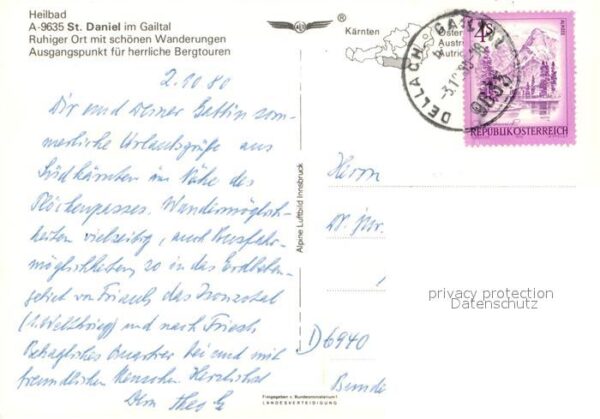 Heilbad
A-9635 St. Daniel im Gailtal
Ruhiger Ort mit schönen Wanderungen
Ausgangspunkt für herrliche Bergtouren
®
Kärnten
Öster
Austr
Autric
DELLACH, GAILTAL
-3.10.80-
9635
4
S
REPUBLIK ÖSTERREICH
2.10.80
Dir und Deiner Gattin som-
merliche Urlaubsgrüße aus
Südkärnten im Nähe des
Plöckenpasses. Wandermöglich-
keiten vielseitig, auch Ausfahr-
möglichkeiten, so in das Erdbeben-
gebiet von Friaul, das Isonzotal
(1. Weltkrieg) und nach
Behagliches Quartier bei und mit
freundlichen Menschen Herzlichst
Dein Theo
Alpine Luftbild Innsbruck
Herrn
Dr. jur.
D 6940
privacy protection
Datenschutz
Freigegeben v. Bundesministerium f.
LANDESVERTEIDIGUNG